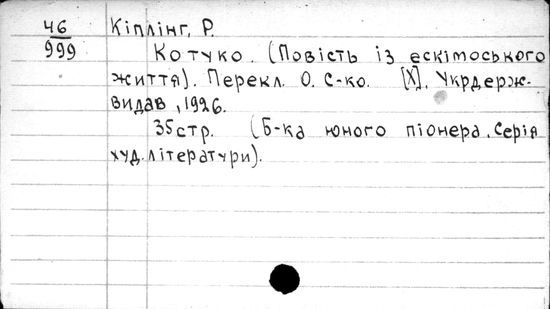 46
999
Кіплінг, Р.
Котуко. (Повість із ескімоського
життя). Перекл. О. С-ко. [Х]. Укрдерж-
видав, 1926.
35 стр. (Б-ка юного піонера. Серія
худ. літератури).